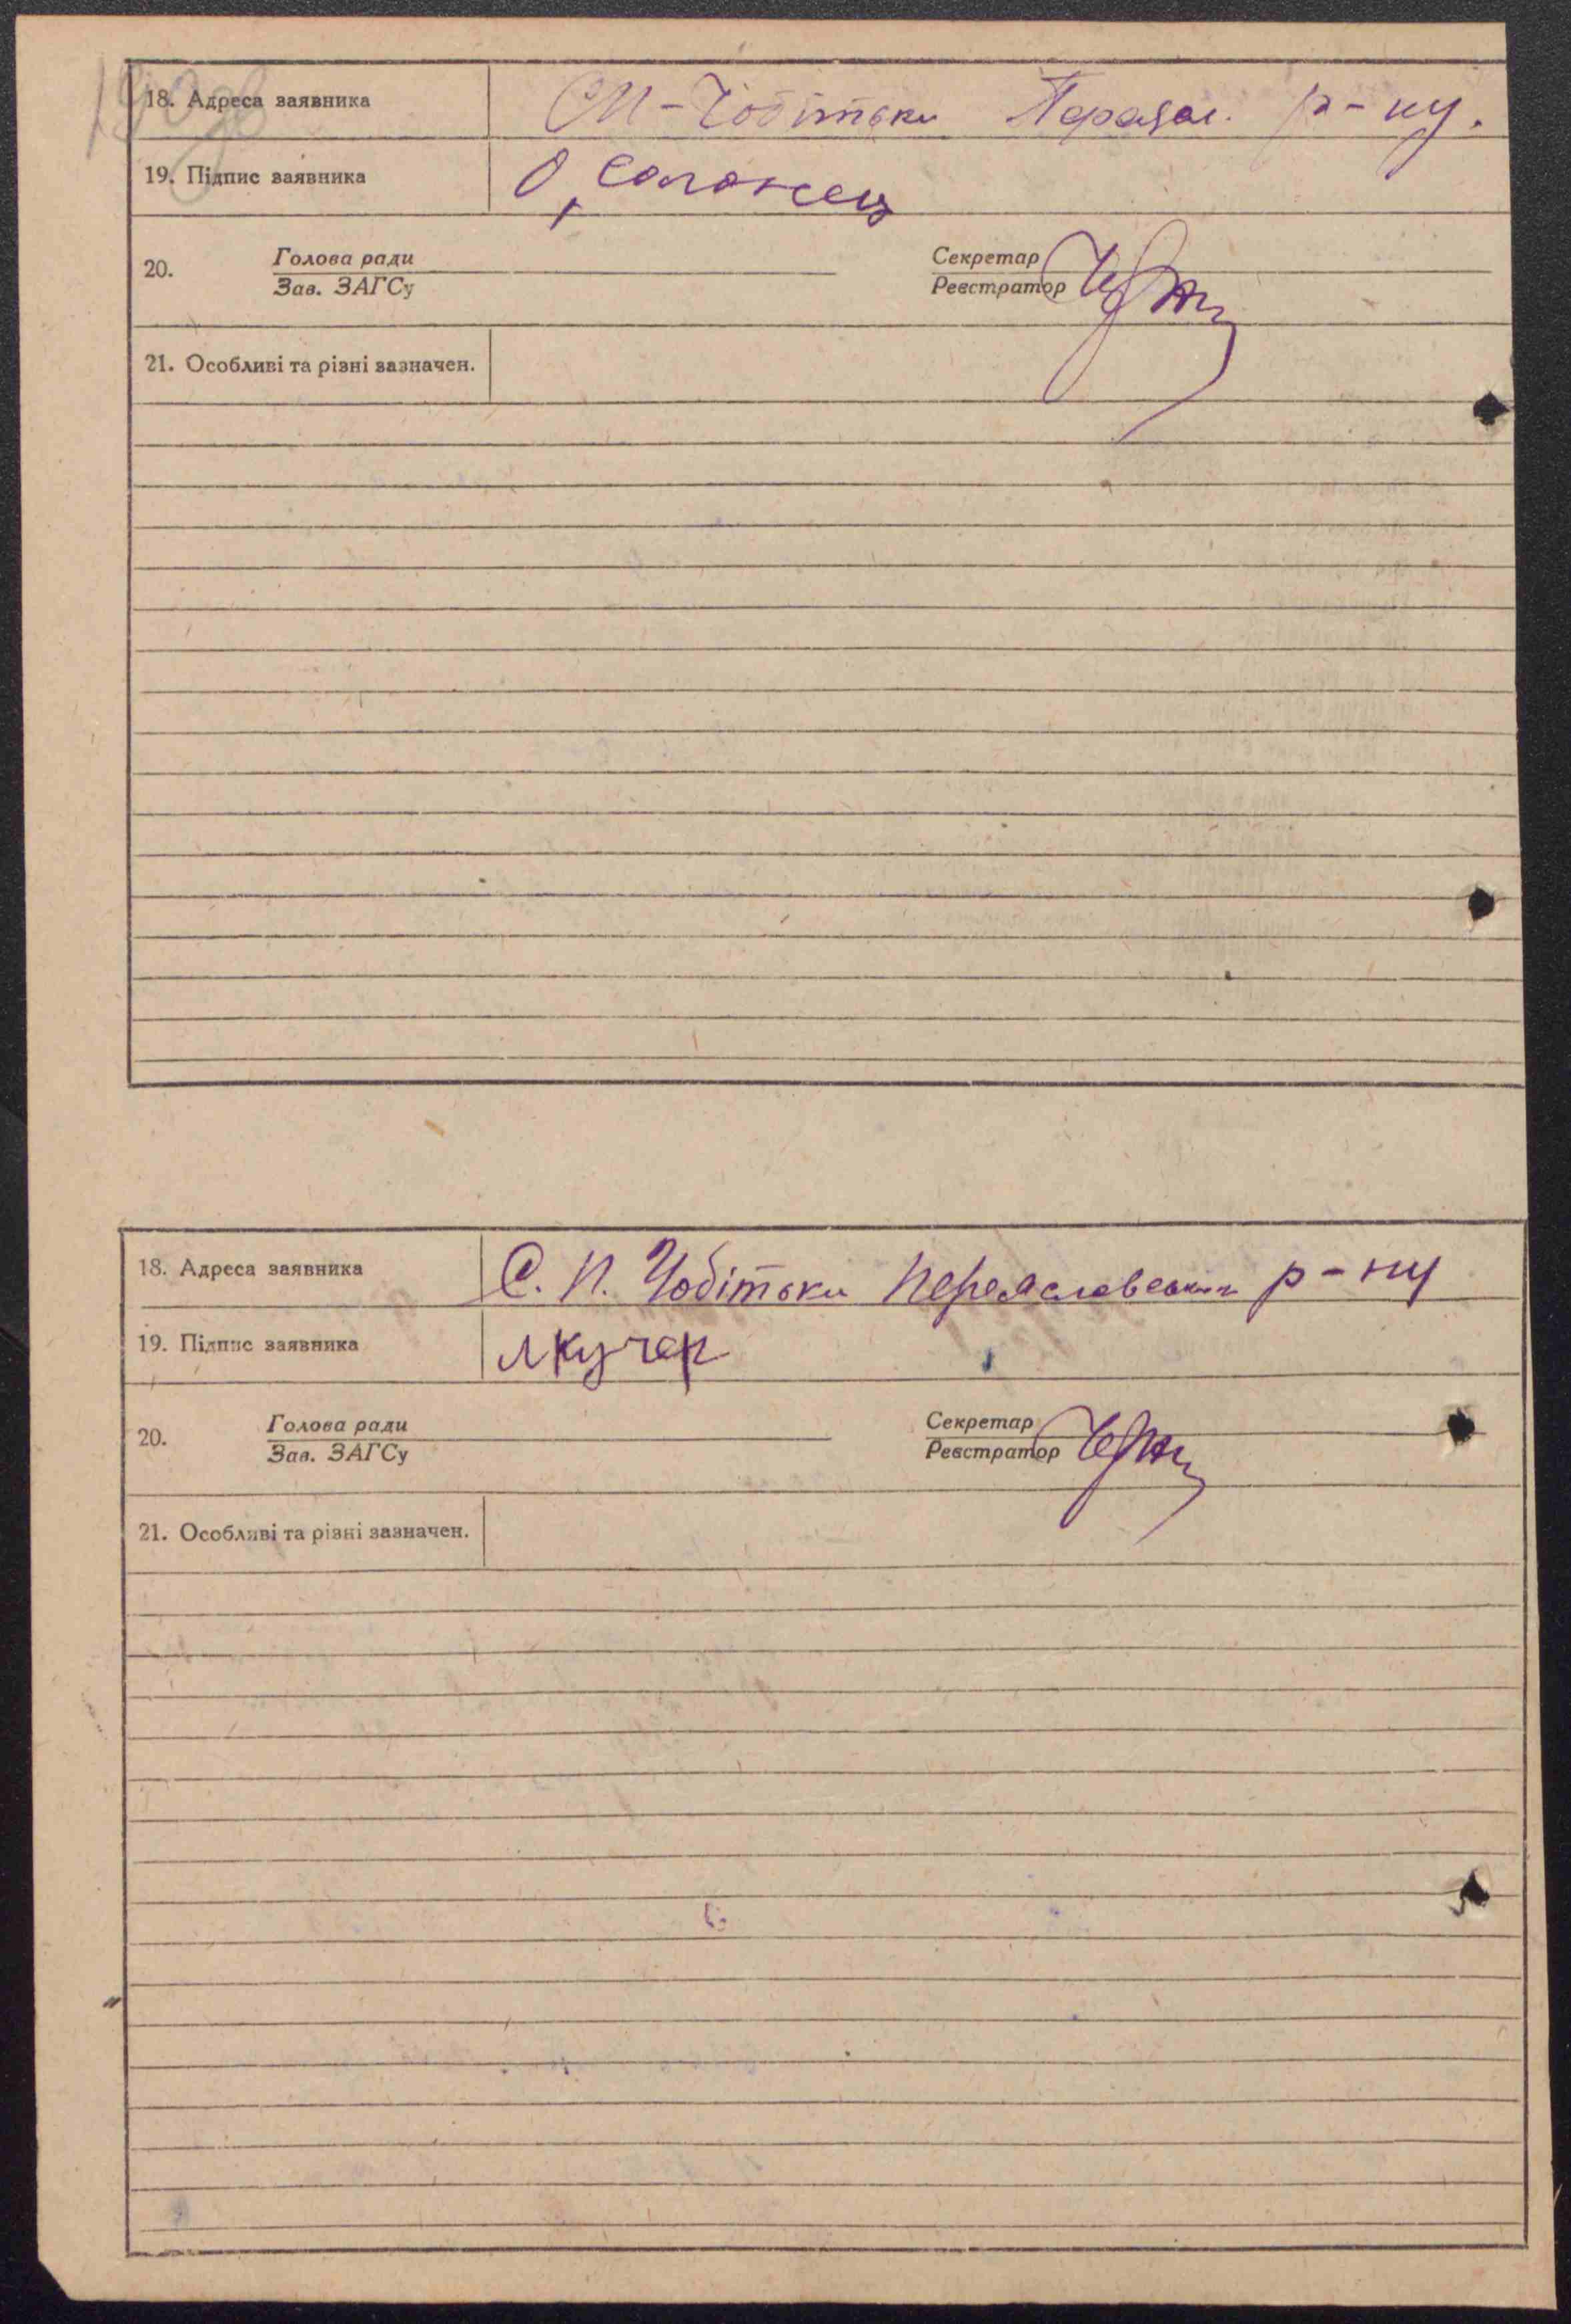 18. Адреса заявника С.П-Чобітьки Переясл. р-ну.
19. Підпис заявника О,
20. Голова ради Секретар
Зав. ЗАГСу Реєстратор
21. Особливі та різні зазначен.
18. Адреса заявника С. П. Чобітьки Переяславськ р-ну
19. Підпис заявника Лкучер
20. Голова ради Секретар
Зав. ЗАГСу Реєстратор
21. Особливі та різні зазначен.